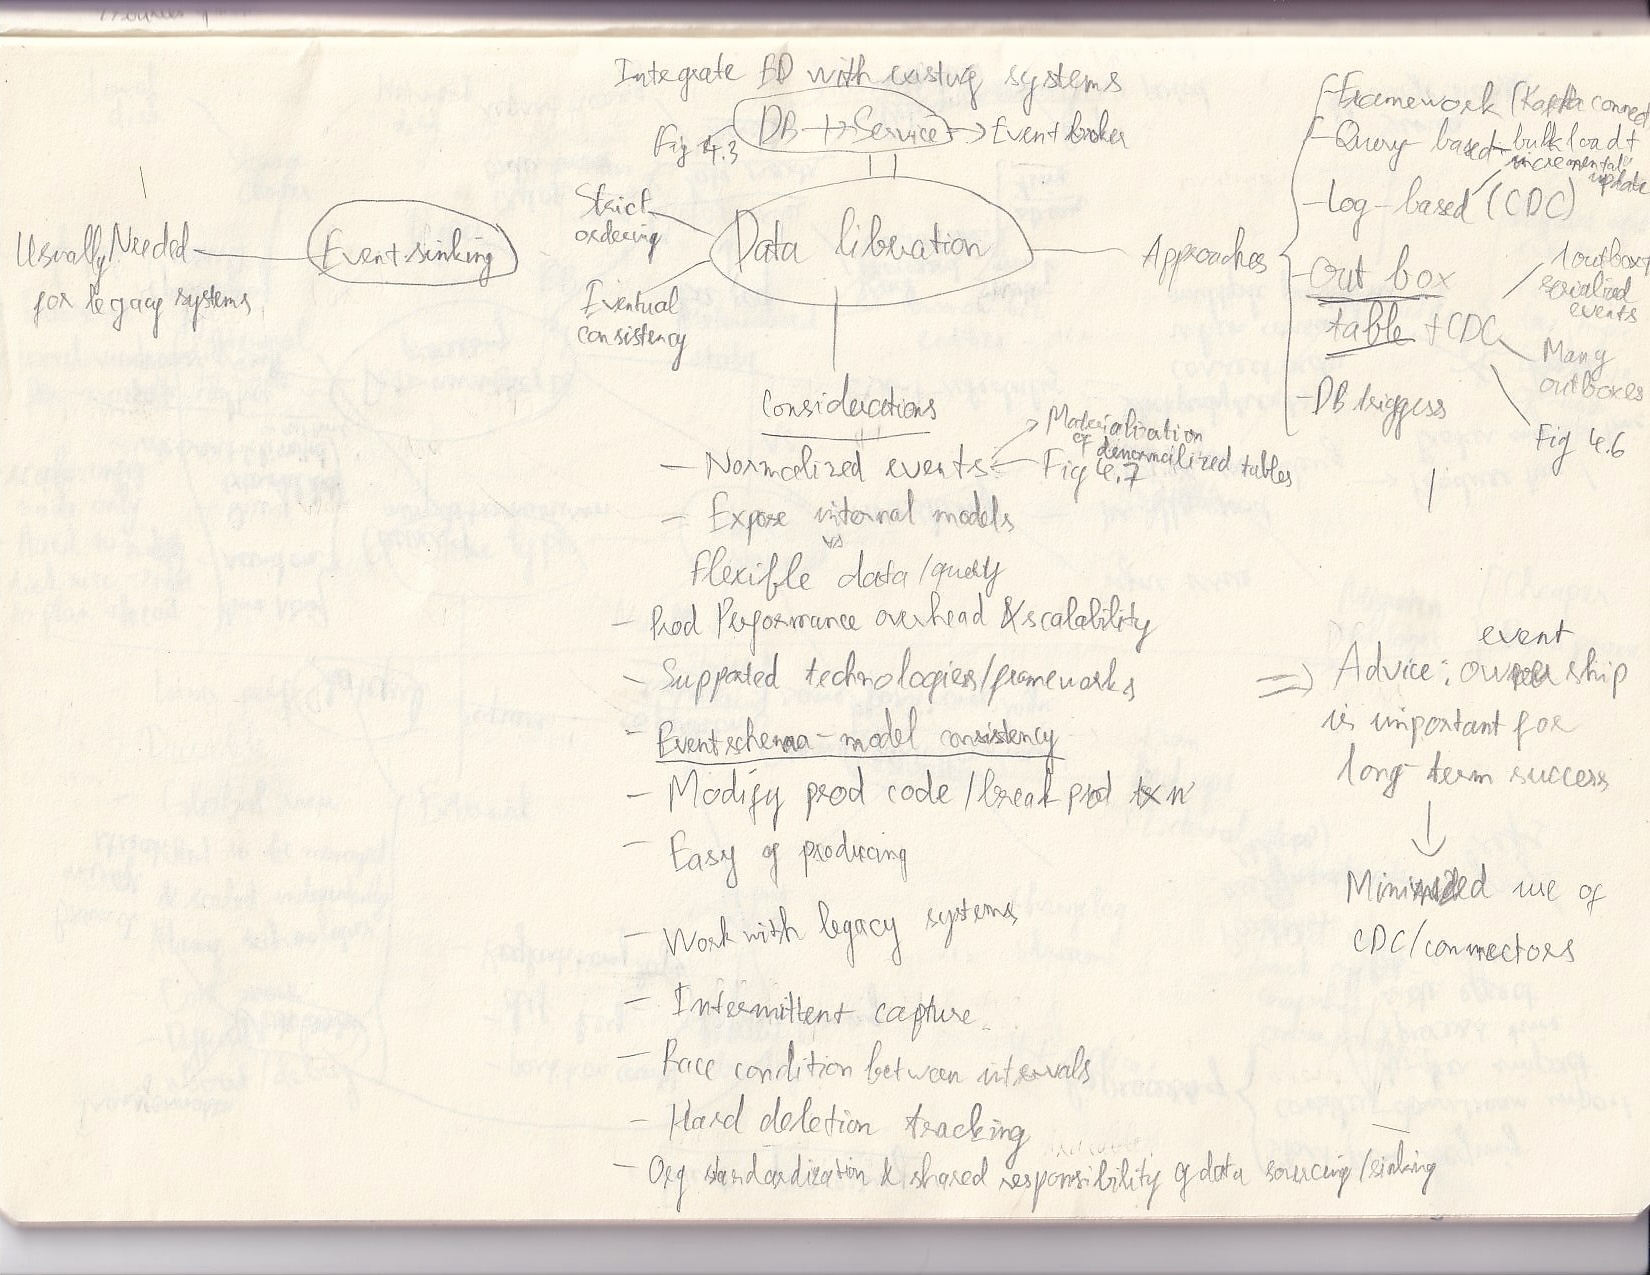 Integrate ED with existing systems
DB → Service → Event broker
Fig 4.3
Strict
ordering
Data liberation
Eventual
consistency
Event sinking
Usually Needed
for legacy systems
Approaches
- Framework (Kafka connect
- Query based - bulk load +
incremental
update
- Log-based (CDC)
- Out box
table + CDC
1 outbox +
serialized
events
Many
outboxes
Fig 4.6
- DB triggers
Considerations
- Normalized events
Materialization
of denormalized tables
Fig 4.7
- Expose internal models
vs
flexible data/query
- Prod Performance overhead & scalability
- Supported technologies/frameworks
- Event schema - model consistency
- Modify prod code / break prod txn
- Easy of producing
- Work with legacy systems
- Intermittent capture
- Race condition between intervals
- Hard deletion tracking
- Org standardization & shared responsibility of data sourcing/sinking
event
=> Advice: ownership
is important for
long-term success
↓
Minimized use of
CDC/connectors